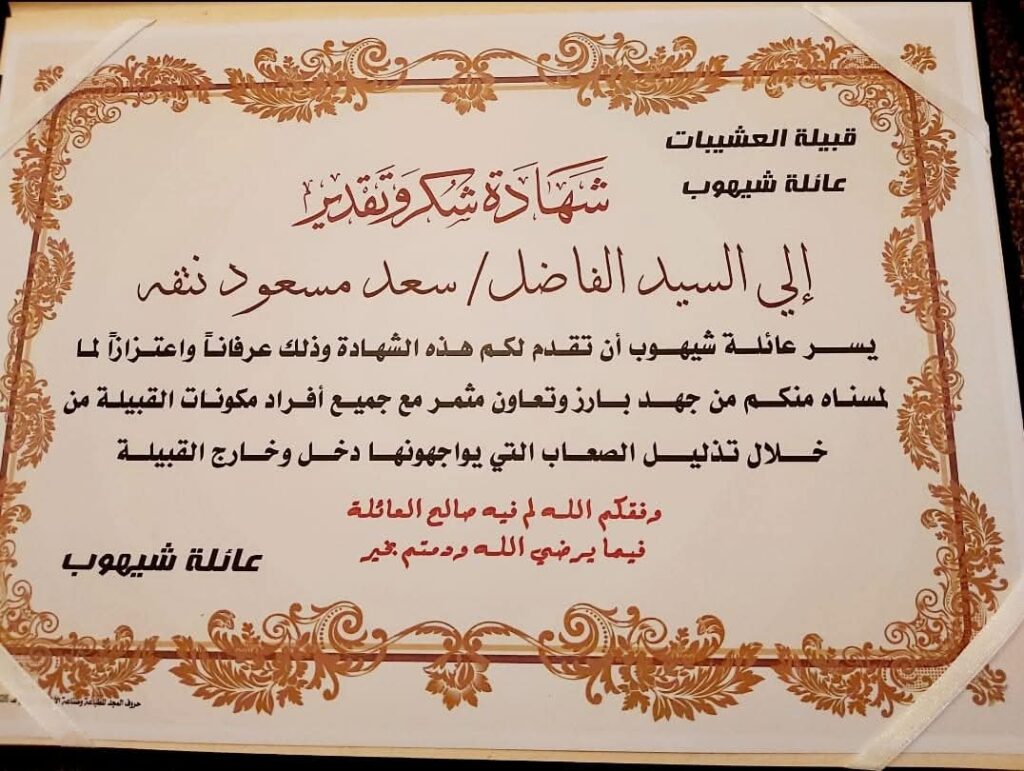 قبيلة العشيبات
عائلة شيهوب
شهادة شكر وتقدير
إلي السيد الفاضل/ سعد مسعود نتفه
يسر عائلة شيهوب أن تقدم لكم هذه الشهادة وذلك عرفاناً واعتزازاً لما
لمسناه منكم من جهد بارز وتعاون مثمر مع جميع أفراد مكونات القبيلة من
خلال تذليل الصعاب التي يواجهونها دخل وخارج القبيلة
وفقكم الله لم فيه صالح العائلة
فيما يرضي الله ودمتم بخير
عائلة شيهوب
حروف المجد للطباعة وصناعة